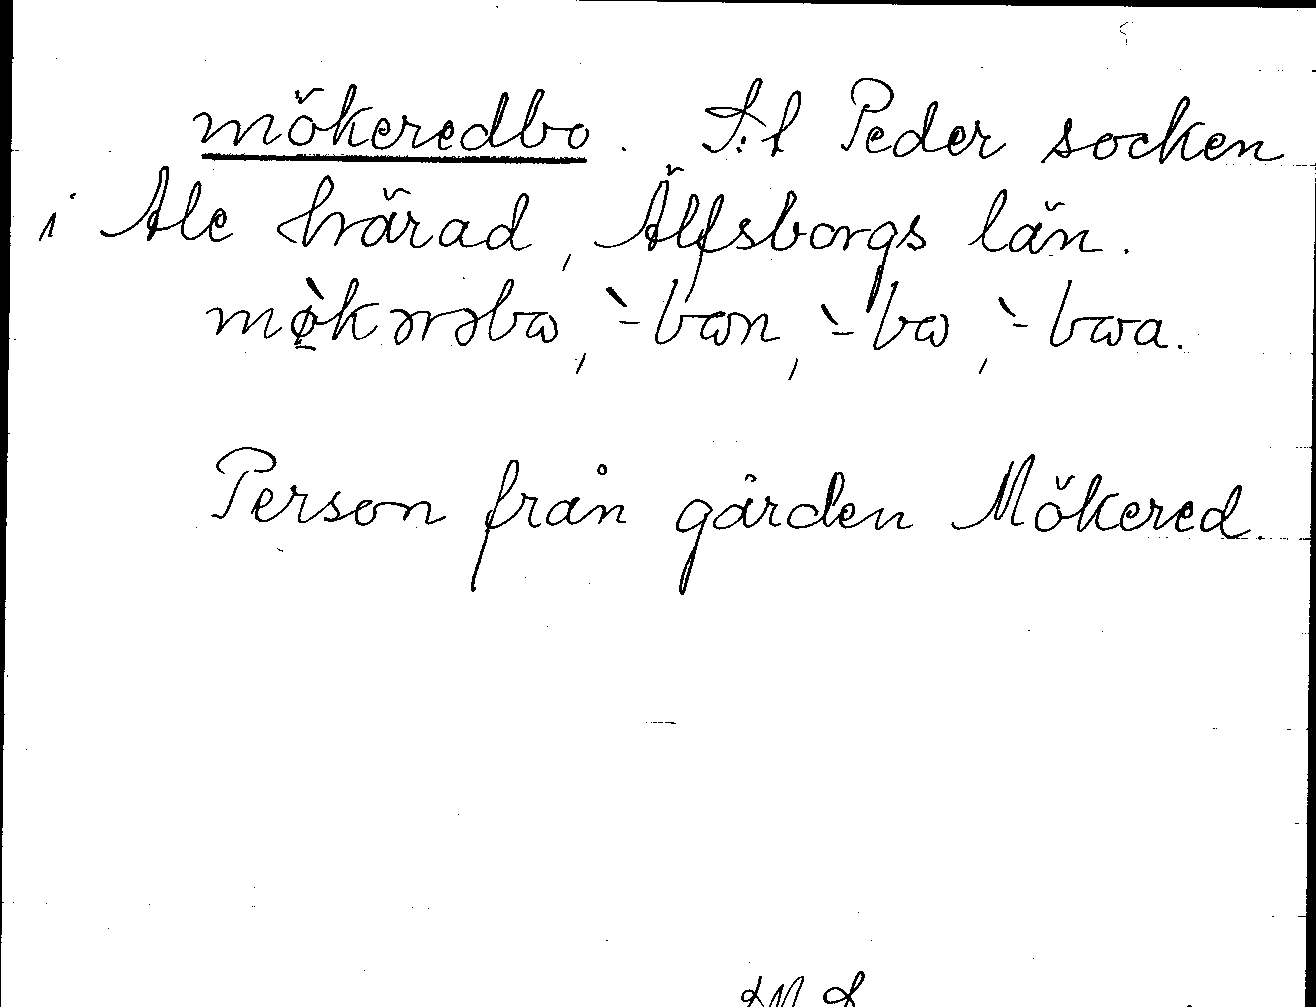 mökeredbo. S:t Peder socken
i Ale härad, Älfsborgs län.
mø̀kərəbω, `-bωn, `-bω, `-bωa.
Person från gården Mökered.